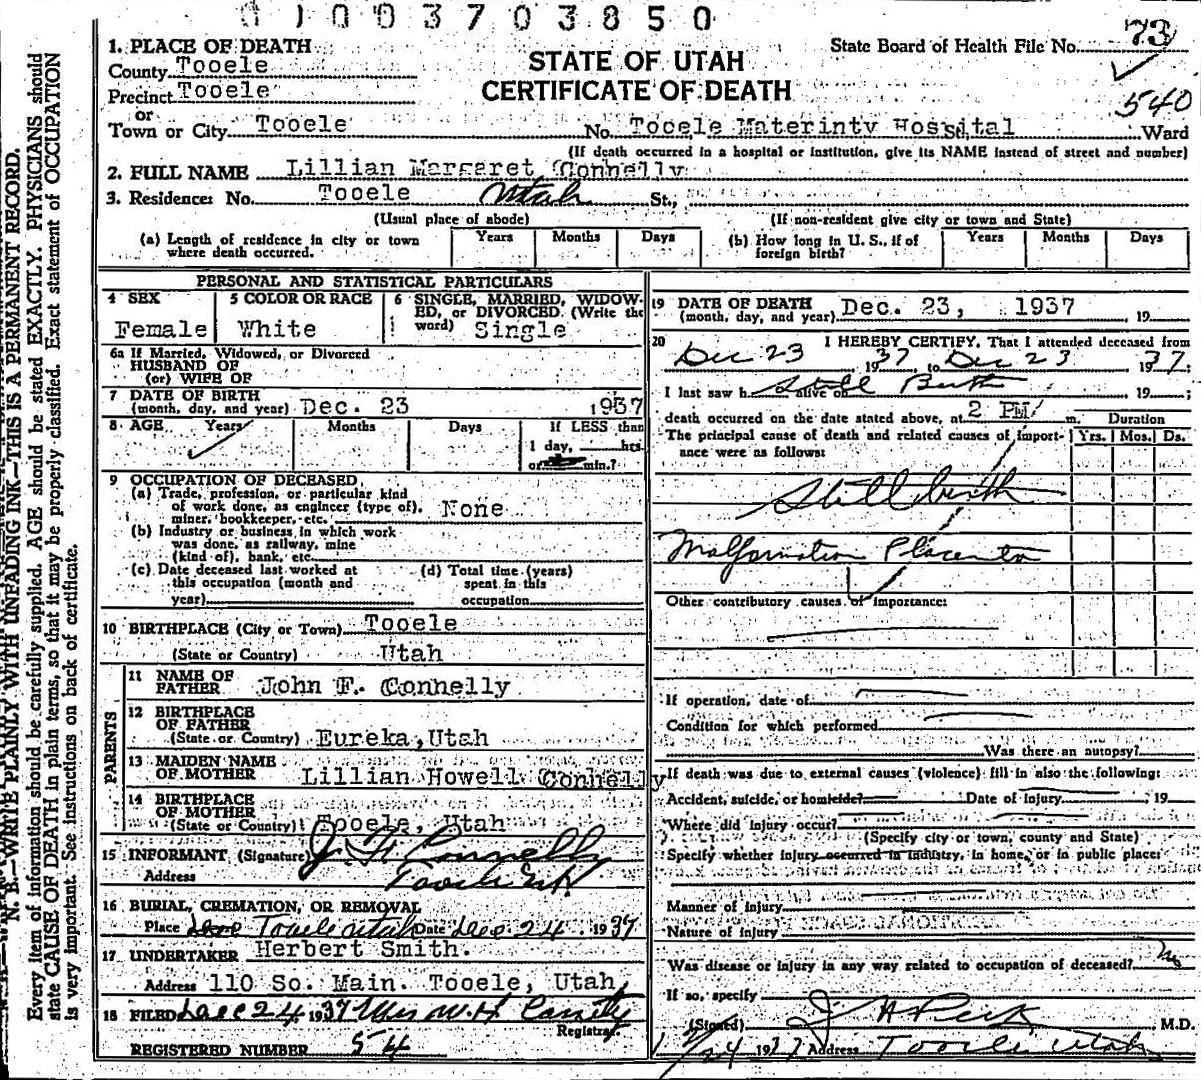 0100370 3850
1. PLACE OF DEATH
County Tooele
Precinct Tooele
or
Town or City Tooele
STATE OF UTAH
CERTIFICATE OF DEATH
State Board of Health File No. 73
540
No. Tooele Materinty Hospital St., Ward
(If death occurred in a hospital or institution, give its NAME instead of street and number)
2. FULL NAME Lillian Margaret Connelly
3. Residence: No. Tooele Utah St.,
(Usual place of abode) (If non-resident give city or town and State)
(a) Length of residence in city or town where death occurred. Years Months Days
(b) How long in U. S., if of foreign birth? Years Months Days
PERSONAL AND STATISTICAL PARTICULARS
4 SEX
Female
5 COLOR OR RACE
White
6 SINGLE, MARRIED, WIDOW-
ED, or DIVORCED. (Write the
word) Single
6a If Married, Widowed, or Divorced
HUSBAND OF
(or) WIFE OF
7 DATE OF BIRTH
(month, day, and year) Dec. 23 1937
8 AGE Years Months Days If LESS than
1 day, hrs
or min.?
9 OCCUPATION OF DECEASED
(a) Trade, profession, or particular kind
of work done, as engineer (type of),
miner, bookkeeper, etc. None
(b) Industry or business in which work
was done, as railway, mine
(kind of), bank, etc.
(c) Date deceased last worked at
this occupation (month and
year)
(d) Total time (years)
spent in this
occupation
10 BIRTHPLACE (City or Town) Tooele
(State or Country) Utah
PARENTS
11 NAME OF
FATHER John F. Connelly
12 BIRTHPLACE
OF FATHER
(State or Country) Eureka, Utah
13 MAIDEN NAME
OF MOTHER Lillian Howell Connelly
14 BIRTHPLACE
OF MOTHER
(State or Country) Tooele, Utah
15 INFORMANT (Signature) Connelly
Address Tooele Utah
16 BURIAL, CREMATION, OR REMOVAL
Place Tooele Utah Date Dec 24 1937
17 UNDERTAKER Herbert Smith.
Address 110 So. Main. Tooele, Utah
18 FILED Dec 24 1937 Mrs W. H. Cassity
Registrar
REGISTERED NUMBER 54
19 DATE OF DEATH
(month, day, and year) Dec. 23, 1937 19
20 I HEREBY CERTIFY, That I attended deceased from
Dec 23 1937 to Dec 23 1937;
I last saw h alive on Still Birth 19 ;
death occurred on the date stated above, at 2 PM m.
The principal cause of death and related causes of import-
ance were as follows:
Duration
Yrs. Mos. Ds.
Stillbirth
Malformation Placenta
Other contributory causes of importance:
If operation, date of
Condition for which performed
Was there an autopsy?
If death was due to external causes (violence) fill in also the following:
Accident, suicide, or homicide? Date of injury 19
Where did injury occur?
(Specify city or town, county and State)
Specify whether injury occurred in industry, in home, or in public place:
Manner of injury
Nature of injury
Was disease or injury in any way related to occupation of deceased? No
If so, specify
(Signed) J H Peck M.D.
12/24 1937 Address Tooele Utah
N. B.—WRITE PLAINLY WITH UNFADING INK—THIS IS A PERMANENT RECORD.
Every item of information should be carefully supplied. AGE should be stated EXACTLY. PHYSICIANS should
state CAUSE OF DEATH in plain terms, so that it may be properly classified. Exact statement of OCCUPATION
is very important. See instructions on back of certificate.